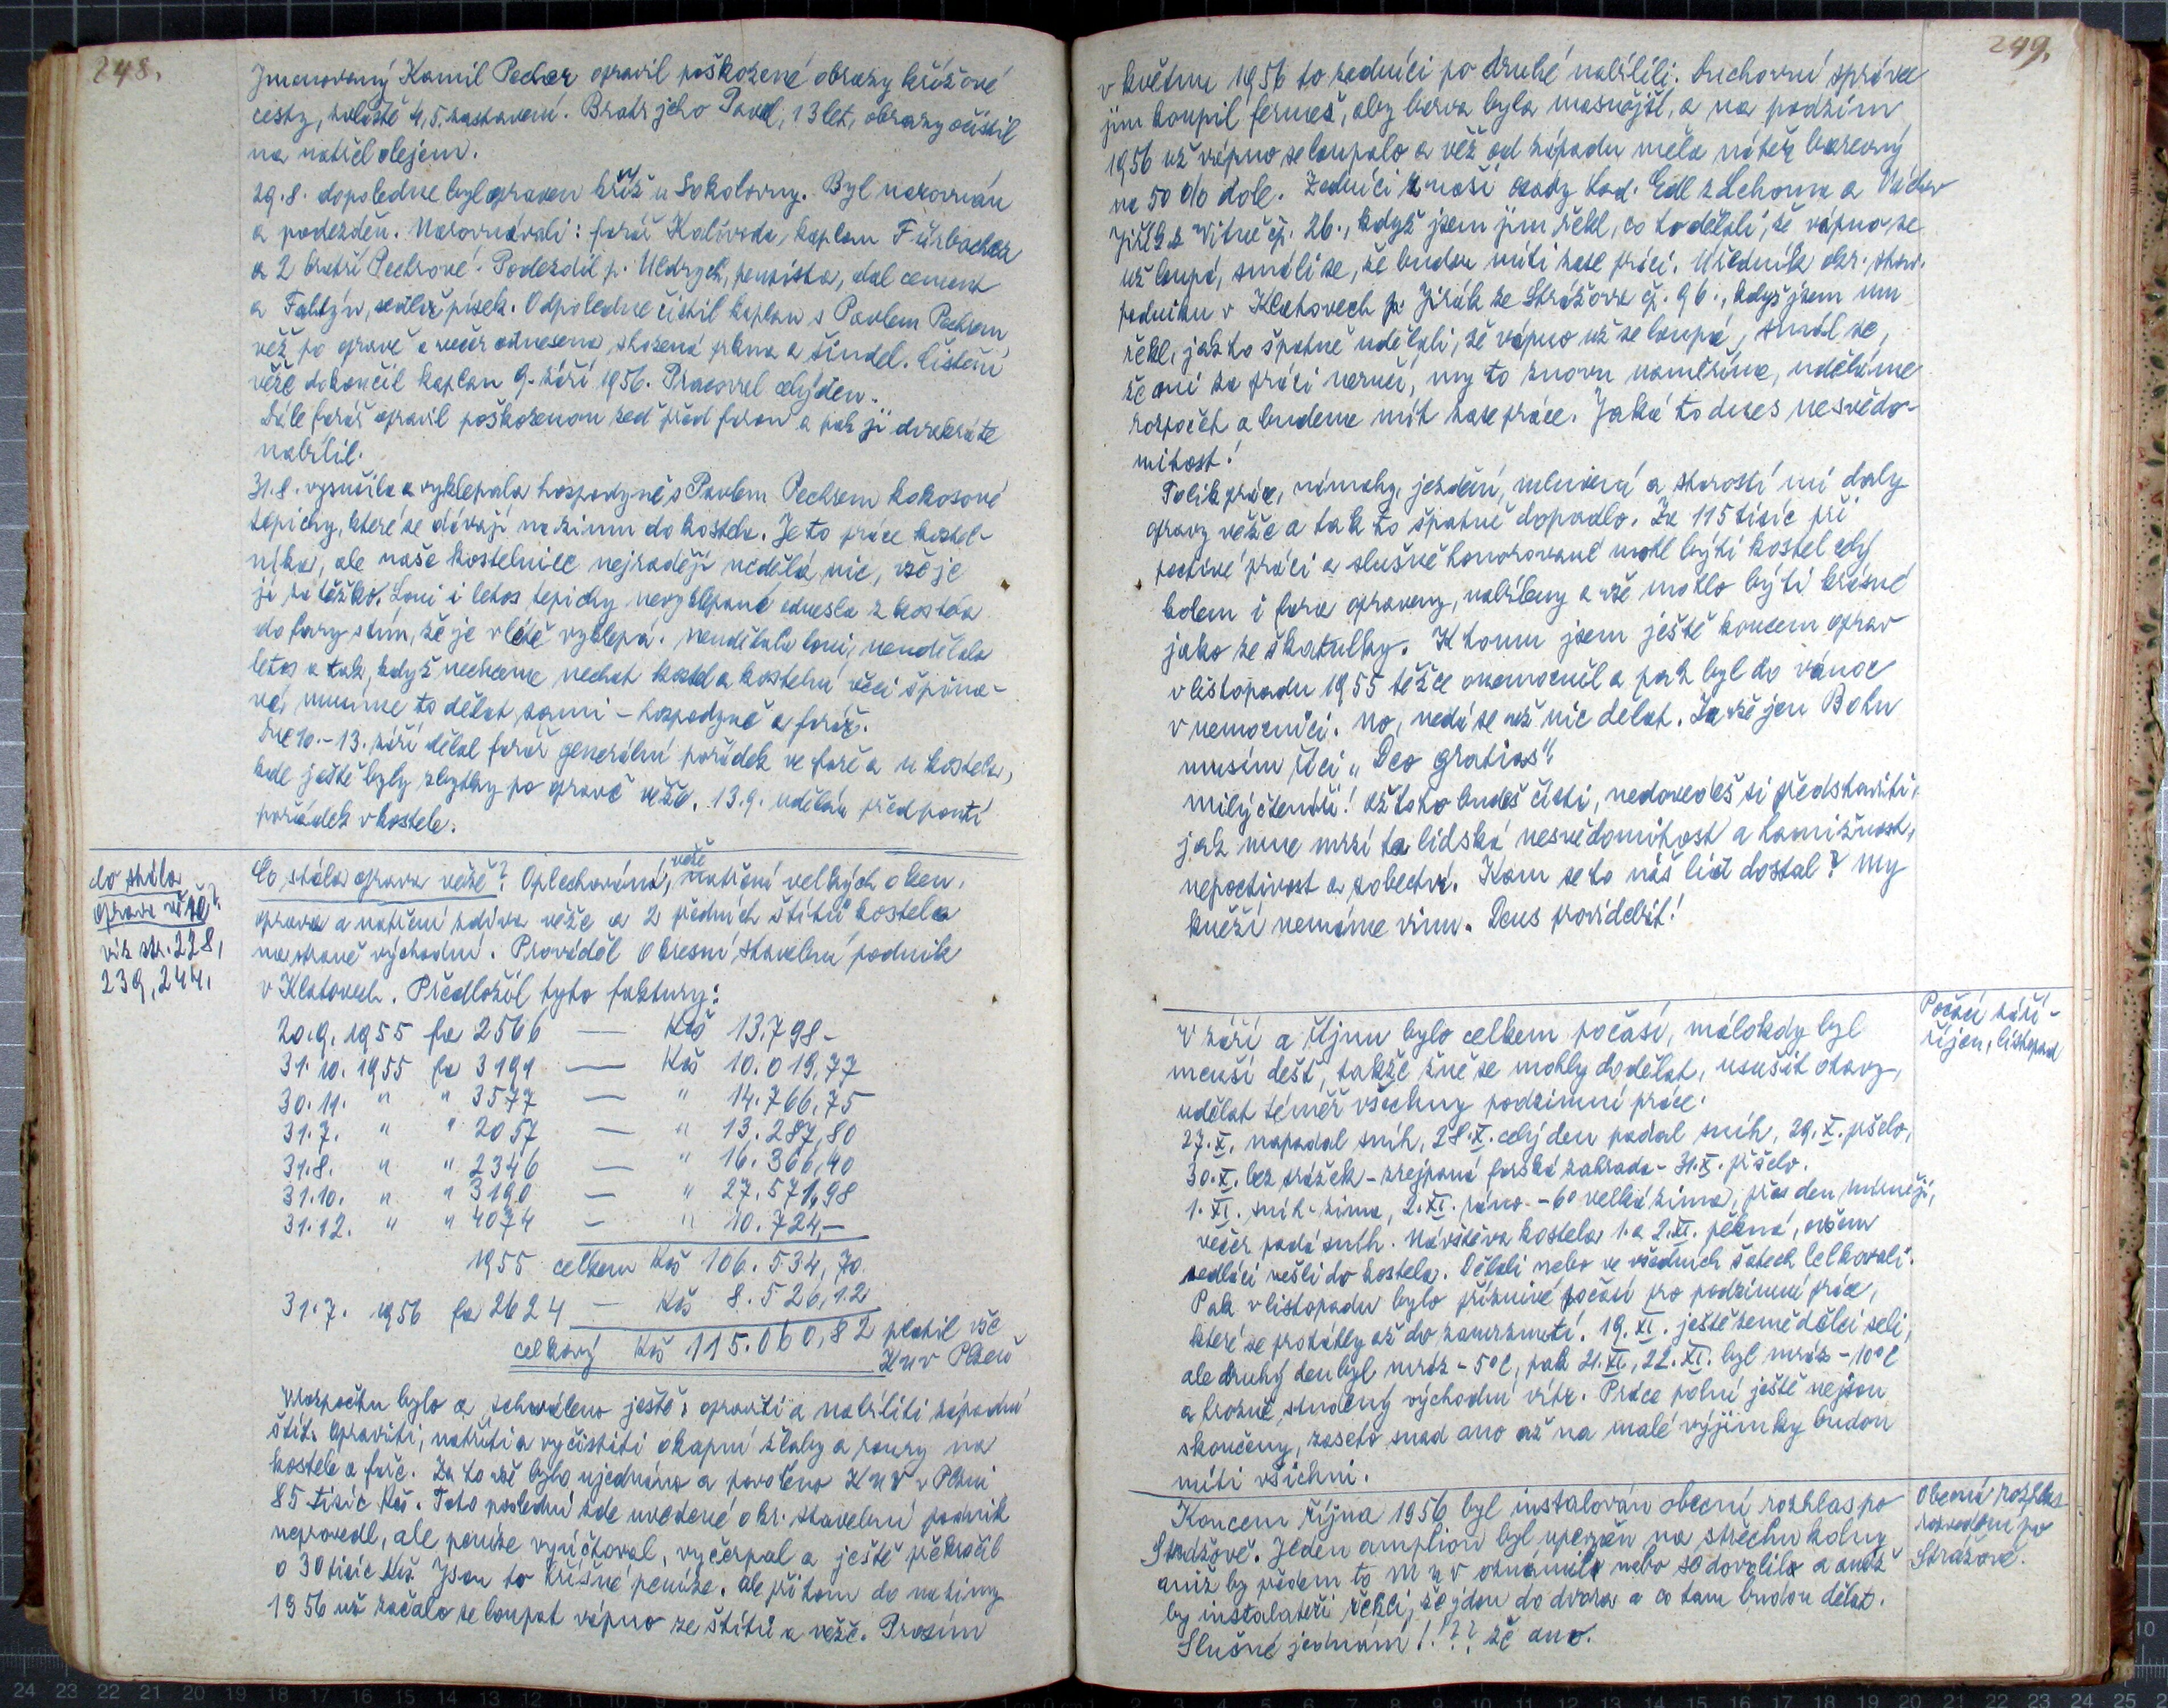 248.
Jmenovaný Kamil Pecher opravil poškozené obrazy křížové
cesty, zvláště 4, 5. zastavení. Bratr jeho Pavel, 13 let, obrazy očistil
na natřel olejem.
29.8. dopoledne byl opraven kříž u Sokolovny. Byl narovnán
a podezděn. Narovnávali: farář Kalivoda, kaplan Fürbacher
a 2 bratři Pechrové. Podezdil p. Uldrych, pensista, dal cement
a Faltýn, sedlák písek. Odpoledne čistil kaplan s Pavlem Pechrem
věž po opravě a večer odnesena složená prkna a šindel. Čistění
věže dokončil kaplan 9. září 1956. Pracoval celý den.
Dále farář opravil poškozenou zeď před farou a pak ji dvakráte
nabílil.
31.8. vysušila a vyklepala hospodyně s Pavlem Pechrem kokosové
tepichy, které se dávají na zimu do kostela. Je to práce kostel-
níka, ale naše kostelnice nejraději nedělá nic, vše je
jí za těžko. Loni i letos tepichy nevyklepané odnesla z kostela
do fary s tím, že je v létě vyklepá. Neudělala loni, neudělala
letos a tak, když nechceme nechat kostel a kostelní věci špina-
vé, musíme to dělat sami – hospodyně a farář.
Dne 10.–13. září dělal farář generální pořádek ve faře a u kostela,
kde ještě byly zbytky po opravě věže. 13.9. udělán před poutí
pořádek v kostele.
do stála
oprava věže?
viz str. 228,
239, 244.
Co stála oprava věže? Oplechování věže, natření velkých oken,
oprava a natření zdiva věže a 2 předních štítů kostela
na straně východní. Prováděl Okresní stavební podnik
v Klatovech. Předložil tyto faktury:
20.9. 1955 fa 2566 — Kčs 13.798 –
31.10. 1955 fa 3191 — Kčs 10.019,77
30.11. " " 3577 — " 14.766,75
31.7. " " 2057 — " 13.287,80
31.8. " " 2346 — " 16.366,40
31.10. " " 3190 — " 27.571,98
31.12. " " 4074 — " 10.724,–
1955 celkem Kčs 106.534,70
31.7. 1956 fa 2624 — Kčs 8.526,12
celkový Kčs 115.060,82 platil vše
KNV Plzeň
V rozpočtu bylo a schváleno ještě: opraviti a nabíliti západní
štít. Opraviti, natříti a vyčistiti okapní žlaby a roury na
kostele a faře. Za to vše bylo ujednáno a povoleno KNV v Plzni
85 tisíc Kčs. Toto poslední zde uvedené okr. stavební podnik
neprovedl, ale peníze vyúčtoval, vyčerpal a ještě překročil
o 30 tisíc Kčs. Jsou to hříšné peníze. Ale při tom do na zimy
1956 už začalo se loupat vápno ze štítů a věže. Prosím
249.
v květnu 1956 to zedníci po druhé nabílili. Duchovní správce
jim koupil fermež, aby barva byla masnější, a na podzim
1956 už vápno se loupalo a věž od západu měla nátěr barevný
na 50 % dole. Zedníci z naší osady Lad. Edl z Lehomě a Václav
Jiřík z Vitně čp. 26., když jsem jim řekl, co to dělali, že vápno se
už loupá, smáli se, že budou míti zase práci. Úředník okr. stav.
podniku v Klatovech p. Jirák ze Strážova čp. 96., když jsem mu
řekl, jak to špatně udělali, že vápno už se loupá, smál se,
že oni za práci neručí, my to znovu naměříme, uděláme
rozpočet a budeme mít zase práce. Jaká to dnes nesvědo-
mitost!
Tolik práce, námahy, ježdění, mluvení a starostí mi daly
opravy věže a tak to špatně dopadlo. Za 115 tisíc při
poctivé práci a slušně honorované mohl býti kostel celý
kolem i fara opraveny, nabíleny a vše mohlo býti krásné
jako ze škatulky. K tomu jsem ještě koncem oprav
v listopadu 1955 těžce onemocněl a pak byl do vánoc
v nemocnici. No, nedá se už nic dělat. Za vše jen Bohu
musím říci „Deo gratias".
Milý čtenáři! Až toto budeš čísti, nedovedeš si představiti,
jak mne mrzí ta lidská nesvědomitost a hamižnost,
nepoctivost a sobectví. Kam se to náš lid dostal? My
kněží nemáme vinu. Deus providebit!
Počasí září –
říjen, listopad
V září a říjnu bylo celkem počasí, málokdy byl
menší déšť, takže žně se mohly dodělat, usušit otavy,
udělat téměř všechny podzimní práce.
27.X. napadal sníh, 28.X. celý den padal sníh, 29.X. pršelo,
30.X. bez srážek – zrejpaná farská zahrada – 31.X. pršelo.
1.XI. sníh – zima, 2.XI. ráno – 6° velká zima, přes den mírněji,
večer padá sníh. Návštěva kostela 1. a 2.XI. pěkná, ovšem
sedláci nešli do kostela. Dělali nebo ve všedních šatech lelkovali.
Pak v listopadu bylo příznivé počasí pro podzimní práce,
které se protáhly až do zamrznutí. 19.XI. ještě zemědělci seli,
ale druhý den byl mráz – 5°C, pak 21.XI., 22.XI. byl mráz – 10°C
a hrozně studený východní vítr. Práce polní ještě nejsou
skončeny, zaseto snad ano až na malé výjimky budou
míti všichni.
Obecní rozhlas
rozveden po
Strážově.
Koncem října 1956 byl instalován obecní rozhlas po
Strážově. Jeden amplion byl upevněn na střechu kolny
aniž by předem to MNV oznámil nebo se dovolil a aniž
by instalatéři řekli, že jdou do dvora a co tam budou dělat.
Slušné jednání!?? že ano.